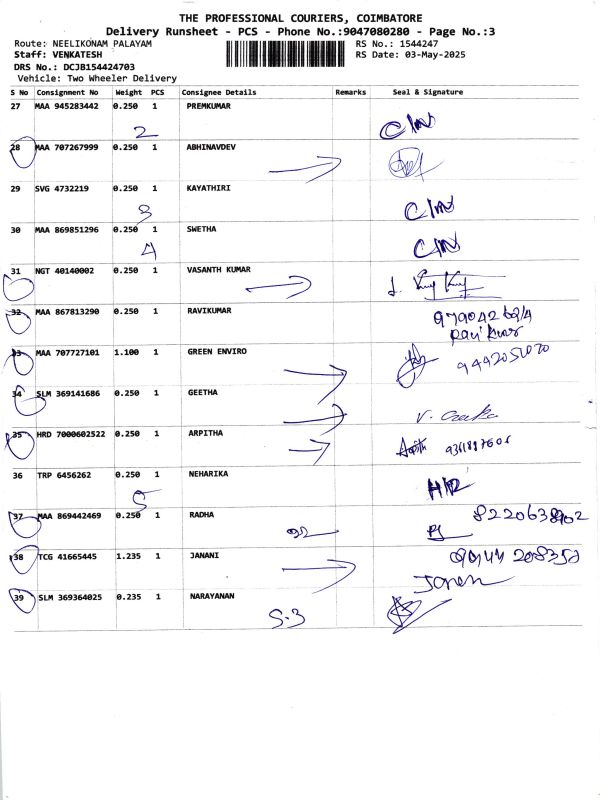 THE PROFESSIONAL COURIERS, COIMBATORE
Delivery Runsheet - PCS - Phone No.:9047080280 - Page No.:3
Route: NEELIKONAM PALAYAM
RS No.: 1544247
Staff: VENKATESH
RS Date: 03-May-2025
DRS No.: DCJB154424703
Vehicle: Two Wheeler Delivery
S No Consignment No Weight PCS Consignee Details Remarks Seal & Signature
27 MAA 945283442 0.250 1 PREMKUMAR
2
28 MAA 707267999 0.250 1 ABHINAVDEV
29 SVG 4732219 0.250 1 KAYATHIRI
3
30 MAA 869851296 0.250 1 SWETHA
4
31 NGT 40140002 0.250 1 VASANTH KUMAR
32 MAA 867813290 0.250 1 RAVIKUMAR
33 MAA 707727101 1.100 1 GREEN ENVIRO
34 SLM 369141686 0.250 1 GEETHA
35 HRD 7000602522 0.250 1 ARPITHA
36 TRP 6456262 0.250 1 NEHARIKA
5
37 MAA 869442469 0.250 1 RADHA 8220638902
38 TCG 41665445 1.235 1 JANANI
39 SLM 369364025 0.235 1 NARAYANAN
S-3